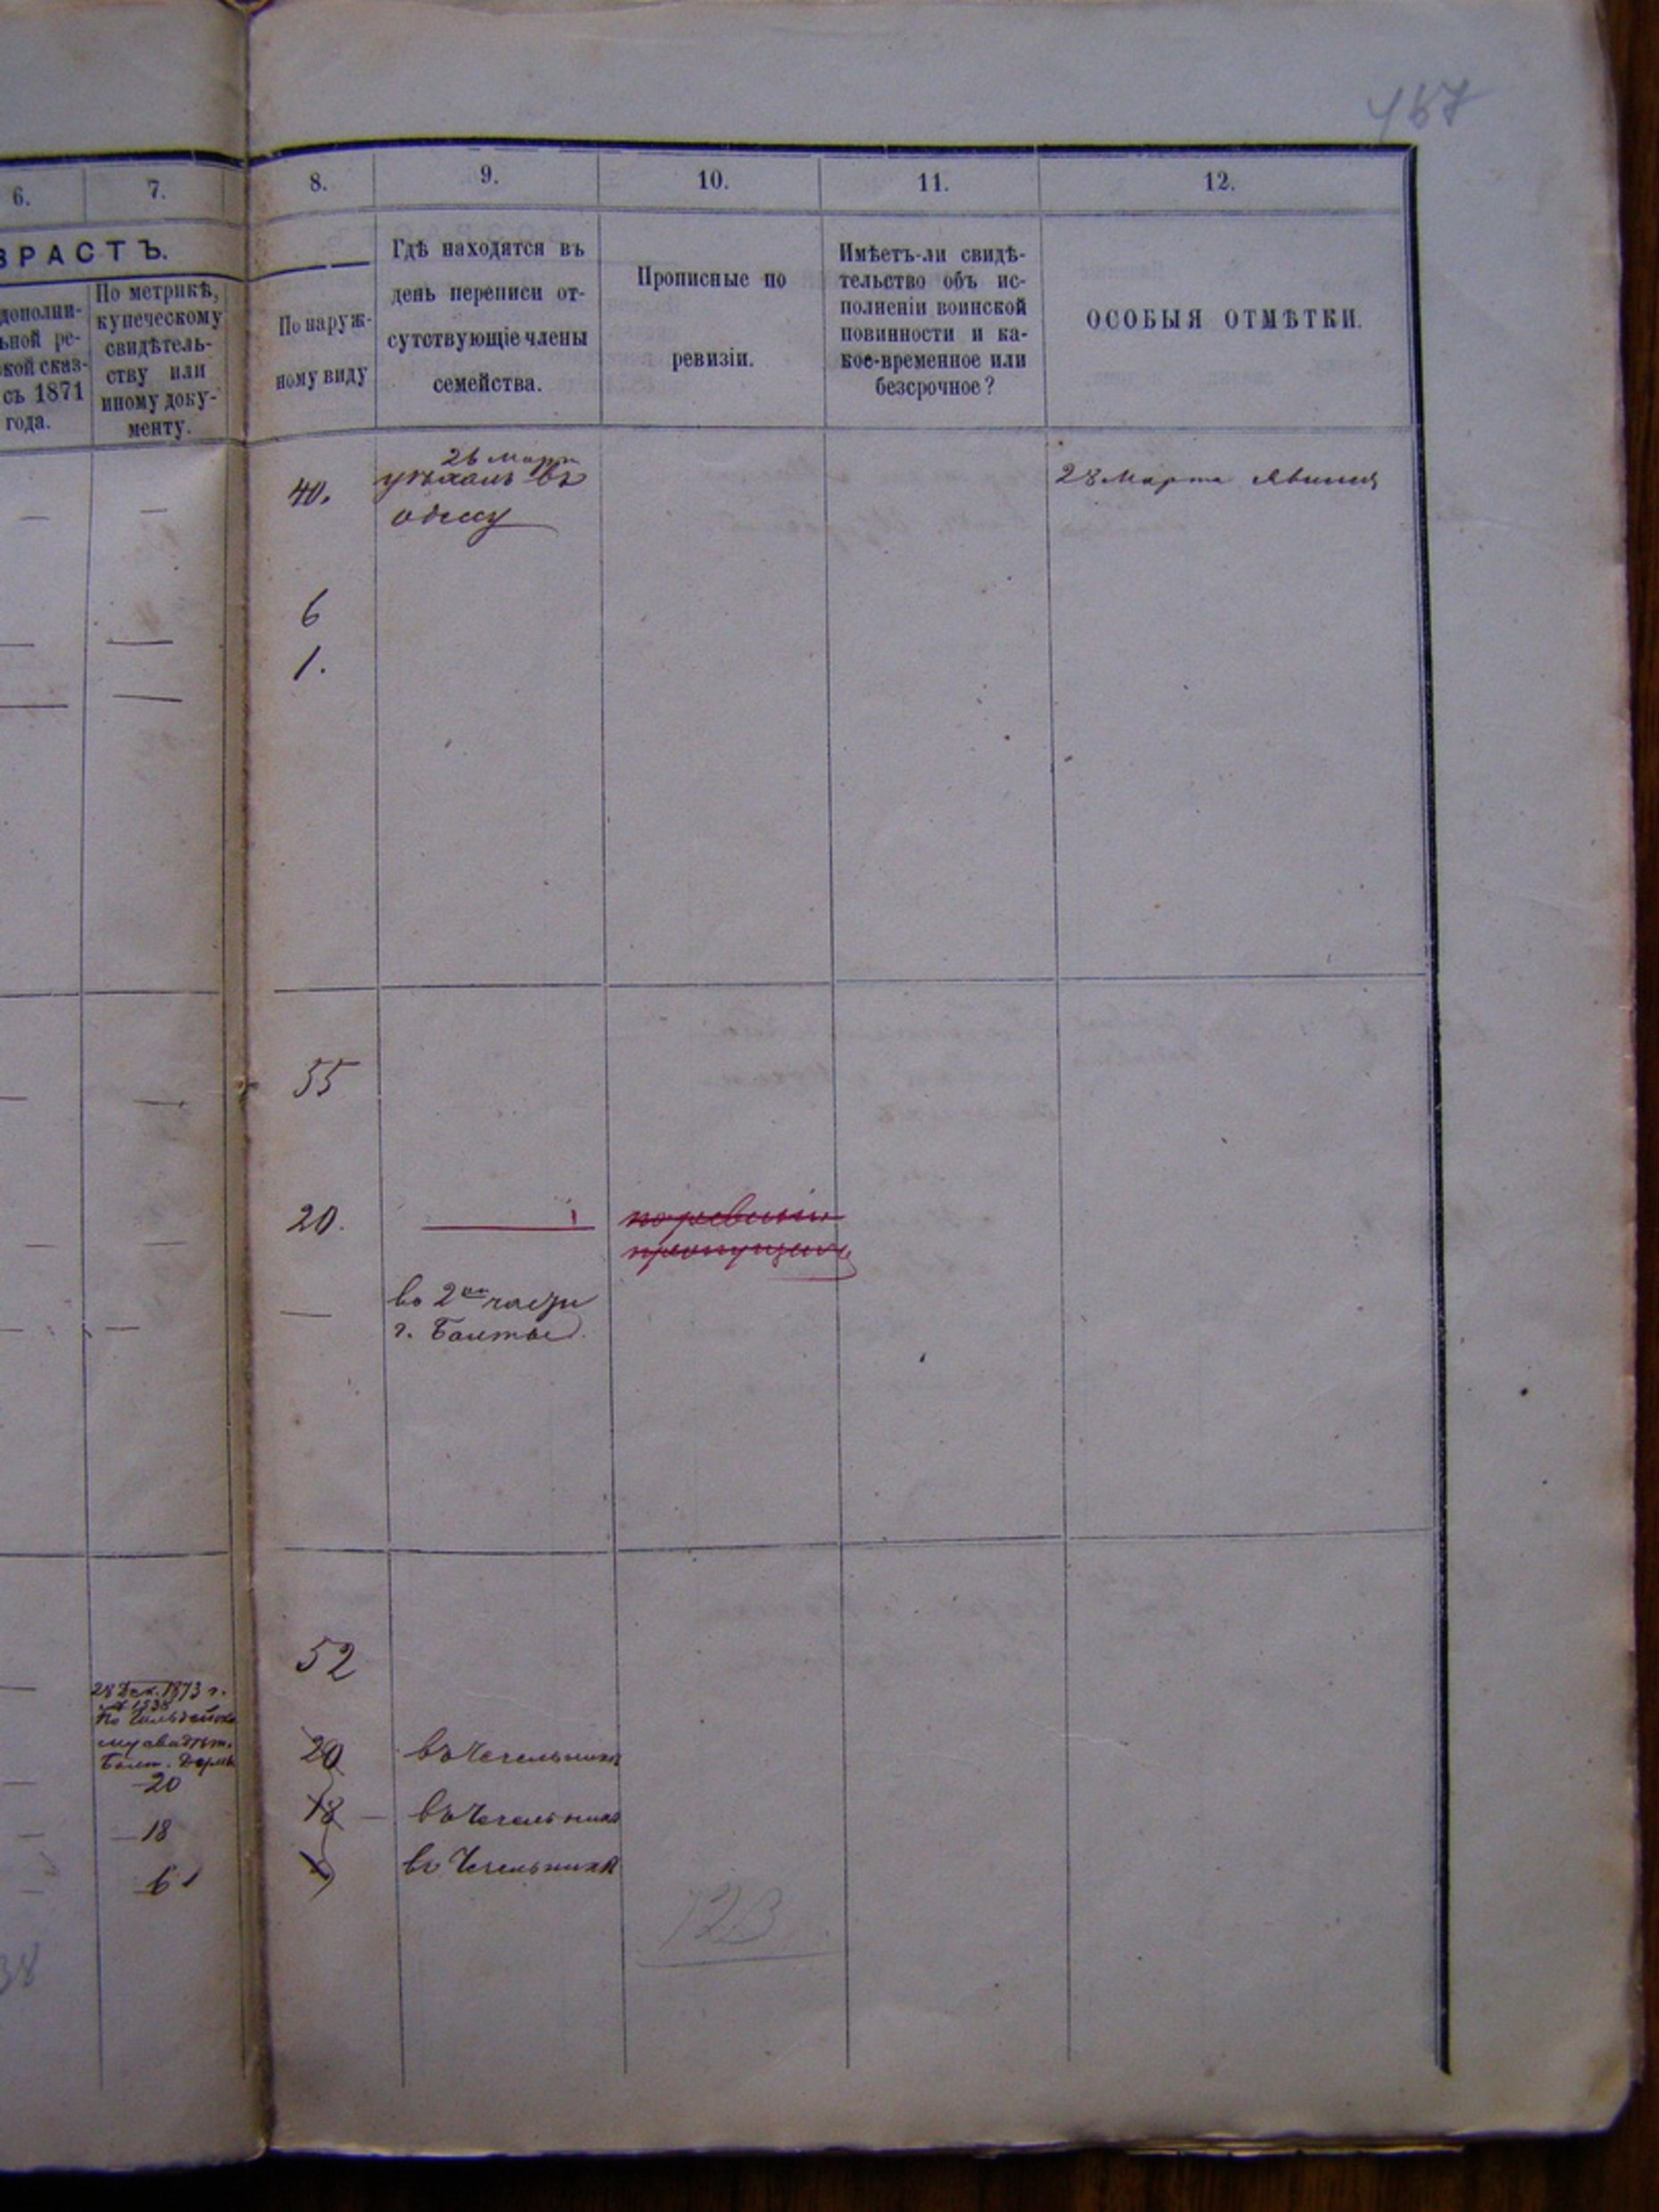 467
6.
7.
8.
9.
10.
11.
12.
ЗРАСТЪ.
дополни-
ьной ре-
кой сказ-
съ 1871
года.
По метрикѣ,
купеческому
свидѣтель-
ству или
иному доку-
менту.
По наруж-
ному виду
Гдѣ находятся въ
день переписи от-
сутствующіе члены
семейства.
Прописные по
ревизіи.
Имѣетъ-ли свидѣ-
тельство объ ис-
полненіи воинской
повинности и ка-
кое-временное или
безсрочное?
ОСОБЫЯ ОТМѢТКИ.
40.
26 Марта
уѣхалъ въ
одессу
28 Марта явился
6
1.
55
20.
1
по ревизіи
пропущенъ
во 2ой части
г. Балты
52
28 Дек. 1873 г.
20
18
6
20
въ Чечельникѣ
18
въ Чечельникѣ
въ Чечельникѣ
123
38